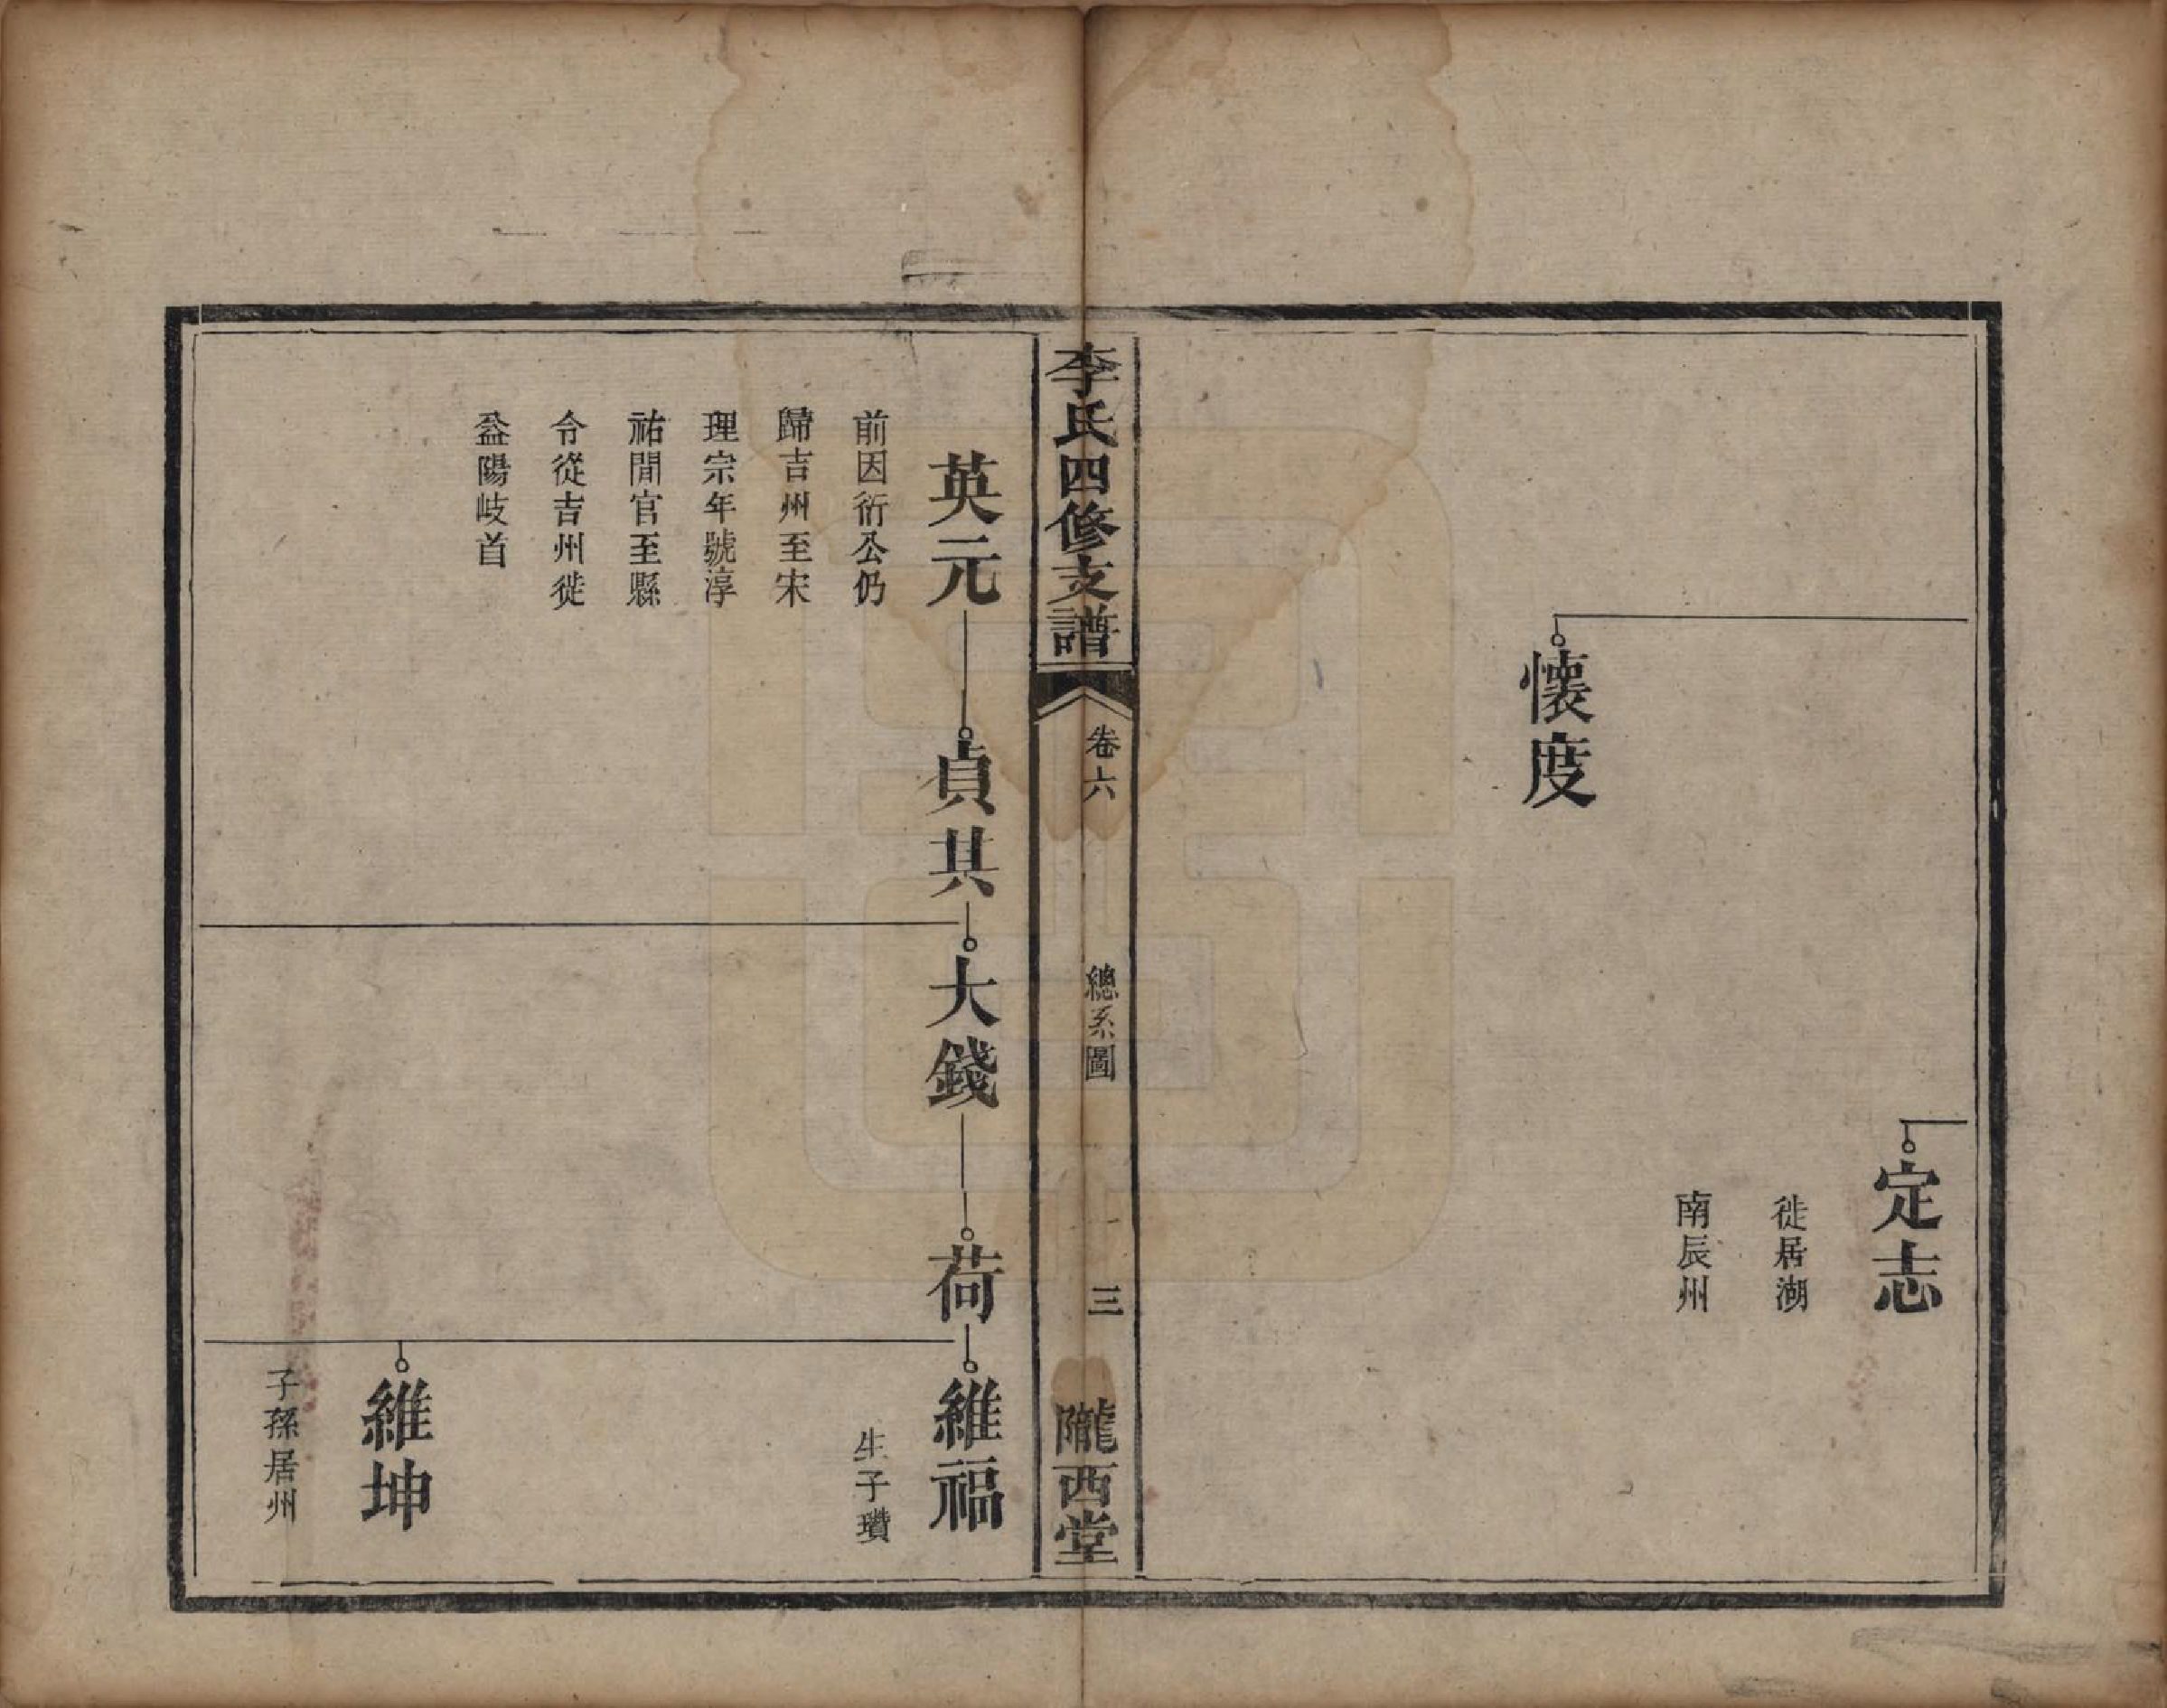 懷度
定志
徙居湖
南辰州
李氏四修支譜
卷六
總系圖
三
隴西堂
英元
前因衍公仍
歸吉州至宋
理宗年號淳
祐閒官至縣
令從吉州徙
益陽岐首
貞其
大錢
荷
維福
生子瓚
維坤
子孫居州